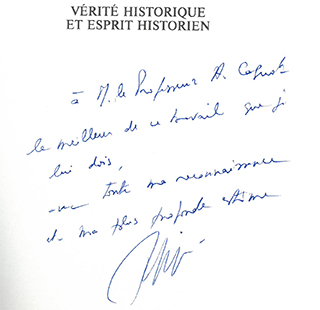 VÉRITÉ HISTORIQUE
ET ESPRIT HISTORIEN
à M. le Professeur A.
le meilleur de ce travail que je
lui dois,
avec toute ma reconnaissance
et ma plus profonde estime